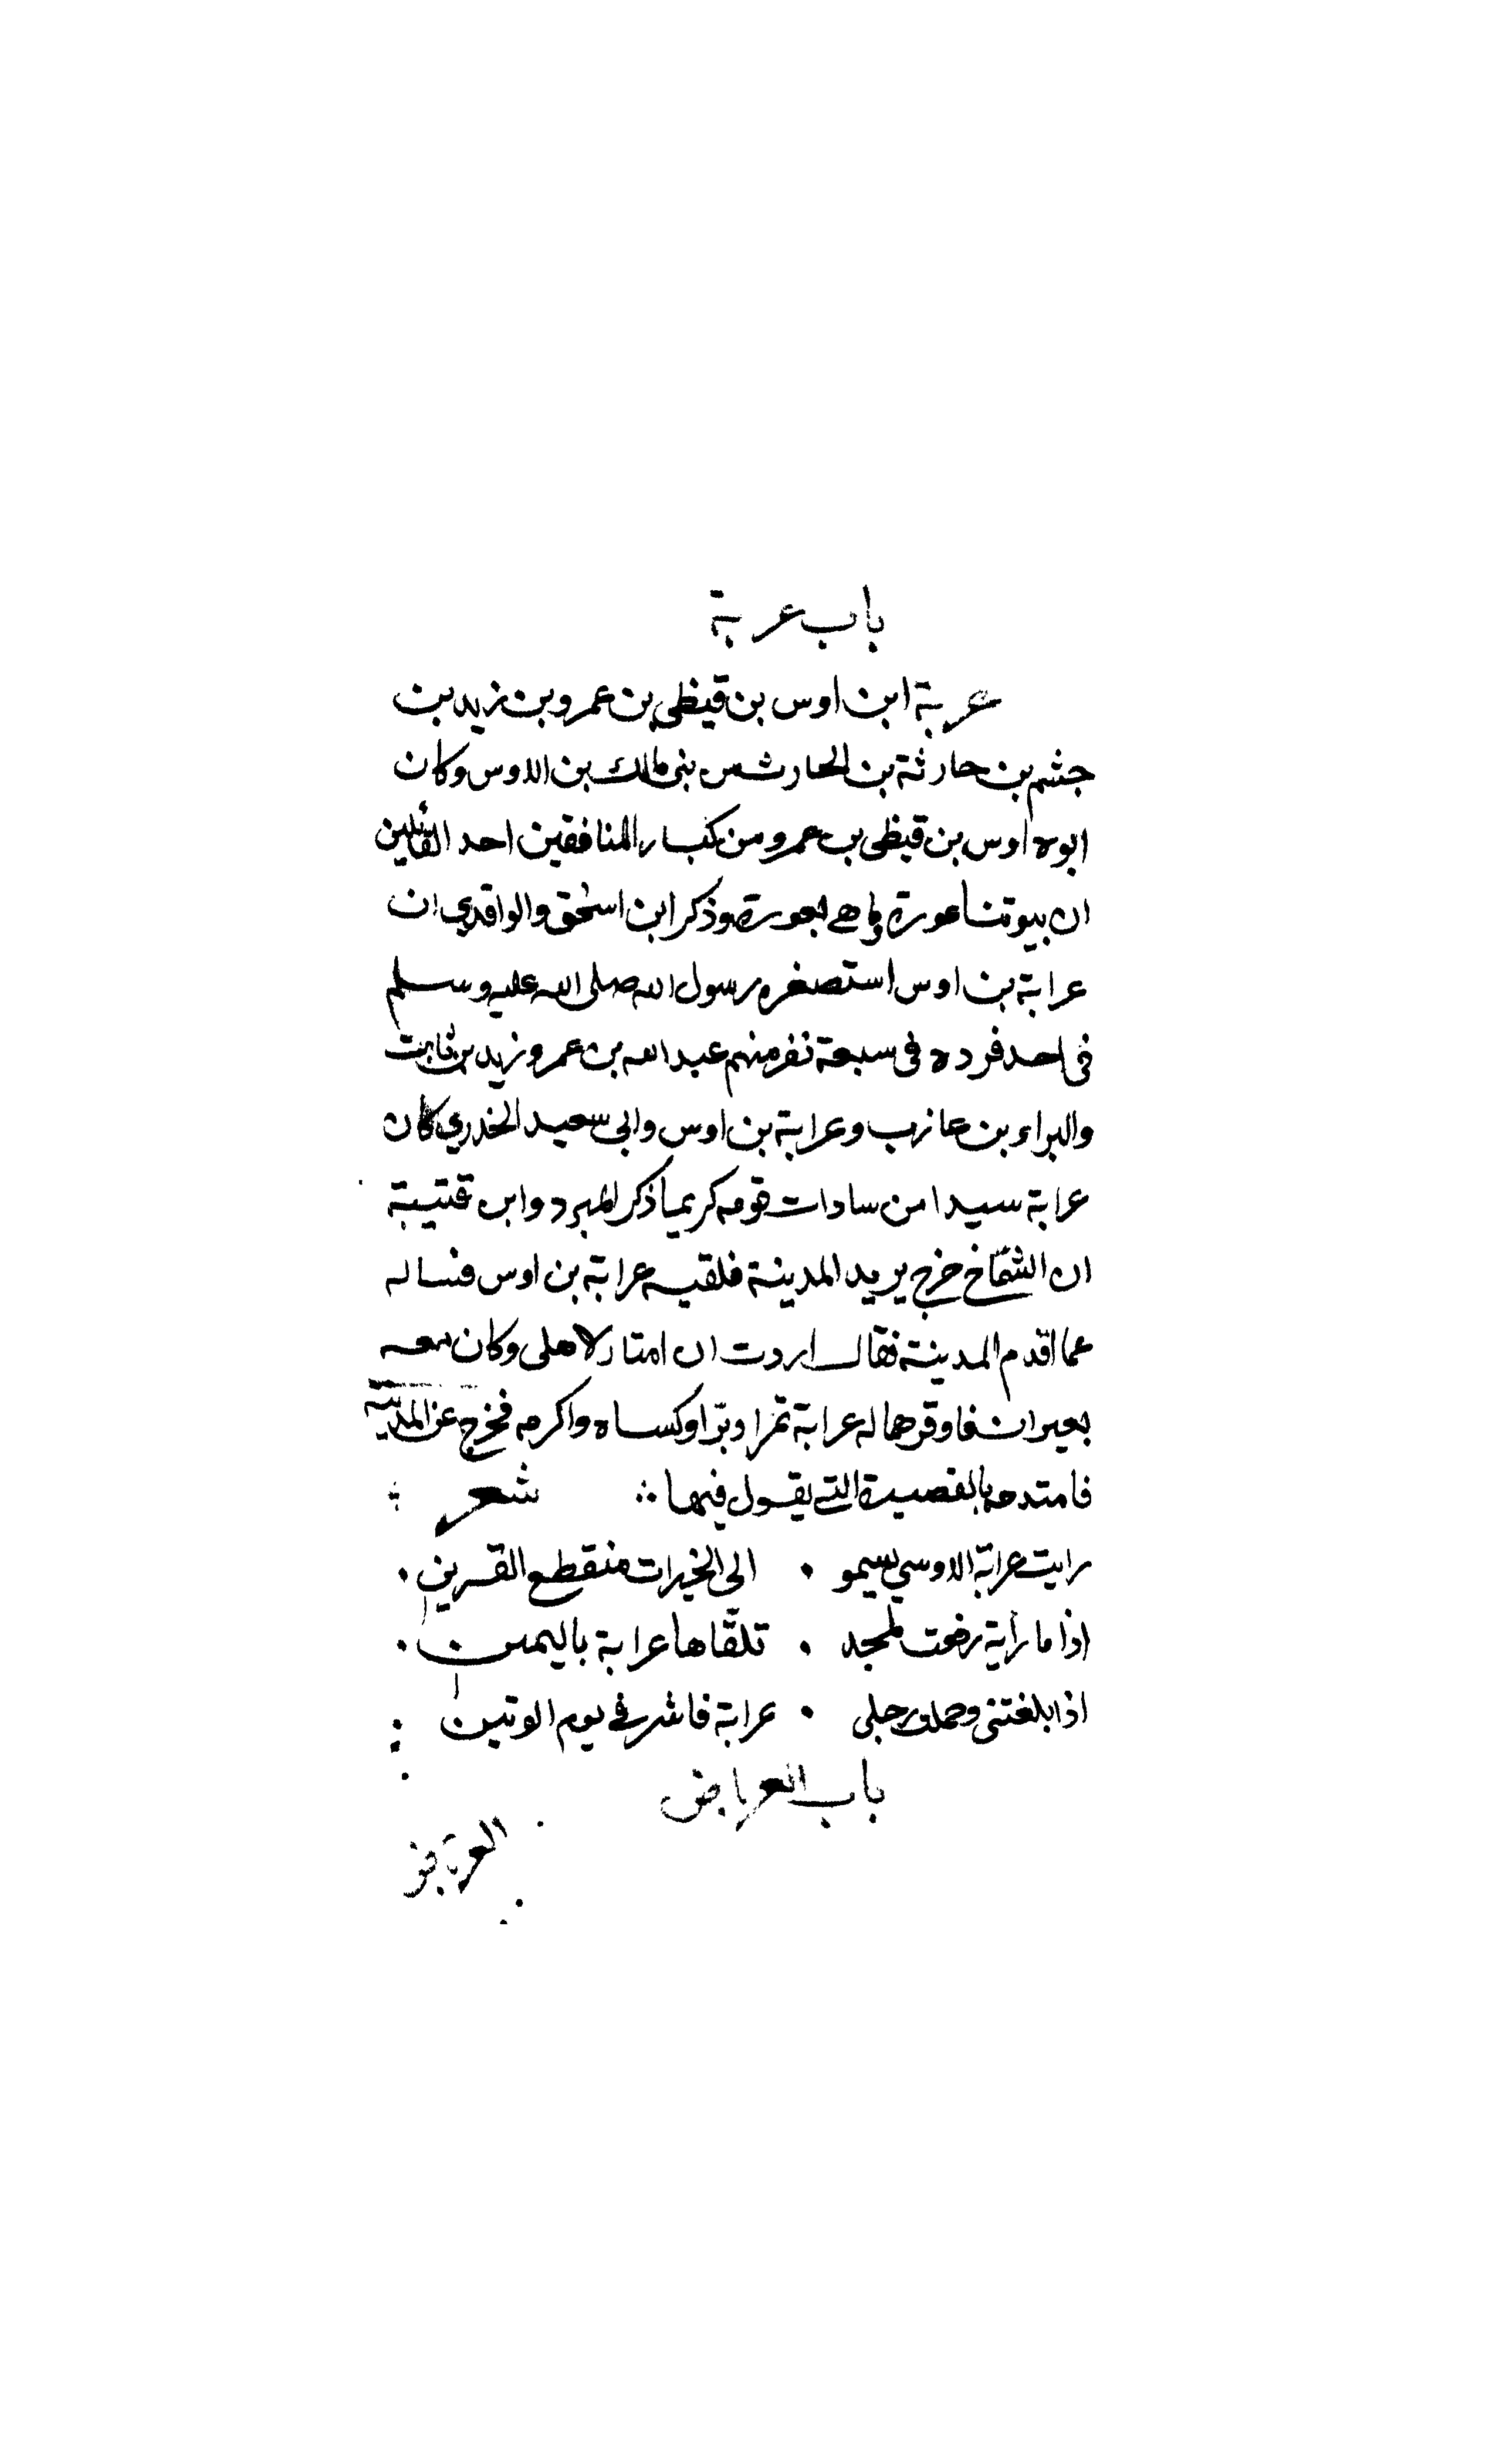 باب عربة
عربة ابن اوس بن قيظى بن عمرو بن زيد بن
جشم بن حارثة بن الحارث من بنى مالك بن الاوس وكان
ابوه اوس بن قيظى بن عمرو من كبار المنافقين احد القائلين
ان بيوتنا عورة وما هى بعورة وذكر ابن اسحق والواقدي ان
عرابة بن اوس استصغره رسول الله صلى الله عليه وسلم
فى احد فرده فى سبعة نفر منهم عبد الله بن عمر وزيد بن ثابت
والبراء بن عازب وعرابة بن اوس وابى سعيد الخدري كان
عرابة سيدا من سادات قومه كريما ذكر المبرد وابن قتيبة
ان الشمّاخ خرج يريد المدينة فلقيه عرابة بن اوس فساله
عما اقدم المدينة فقال اردت ان امتار لاهلى وكان معه
بعيران فاوقرهما له عرابة تمرا وبرّا وكساه واكرمه فخرج عن المدينة
فامتدحه بالقصيدة التى يقول فيها ∴ شعر
رايت عرابة الاوسي يسمو • الى الخيرات منقطع القرين •
اذا ما رأية رفعت لمجد • تلقّاها عرابة باليمين •
اذا بلغتنى وحملت رحلى • عرابة فاشرقى بدم الوتين
باب العرباض
العرباض